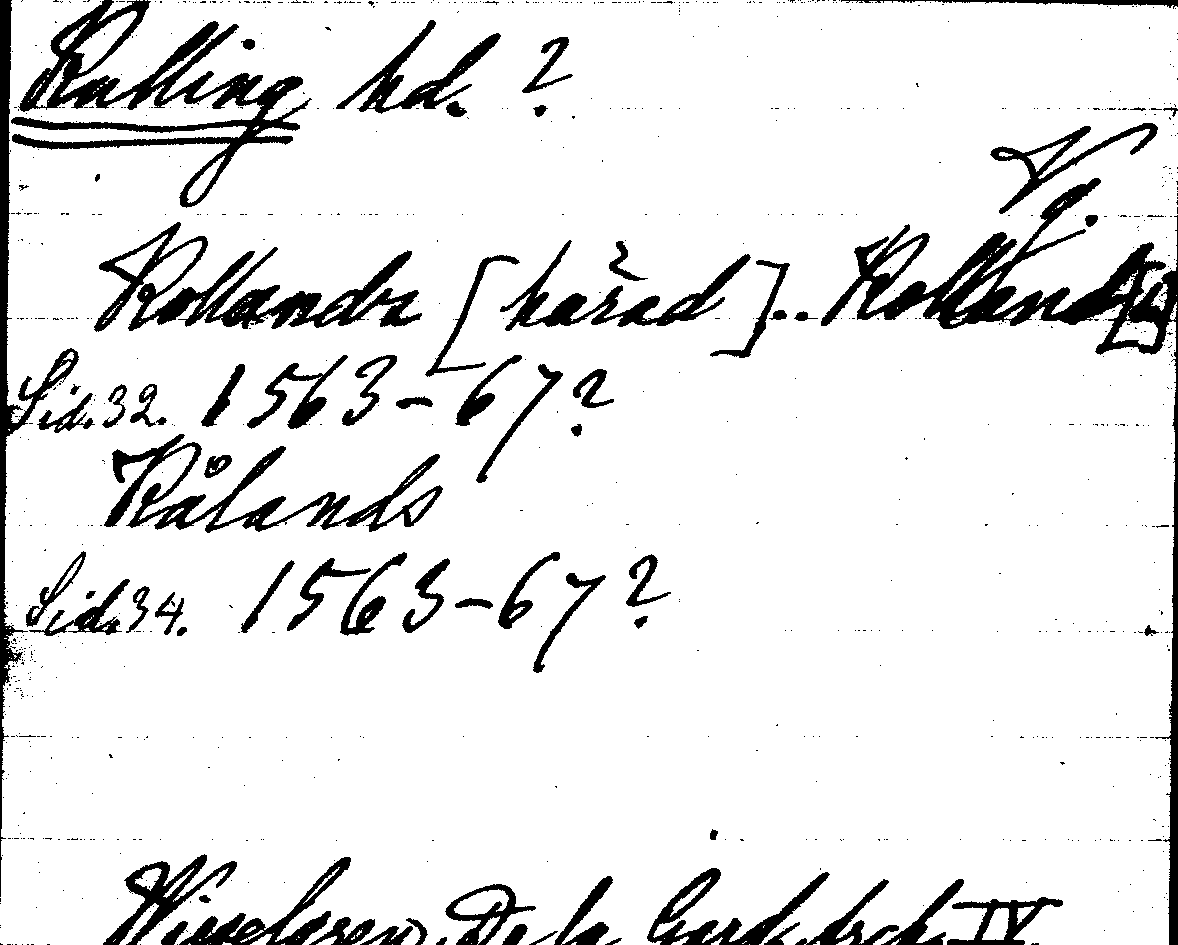 Kulling hd. ?
Vg.
Kollands [härad]... Kolland[s]
Sid. 32. 1563-67?
Kålands
Sid. 34. 1563-67?
Wieselgren, De la Gard. arch. IV